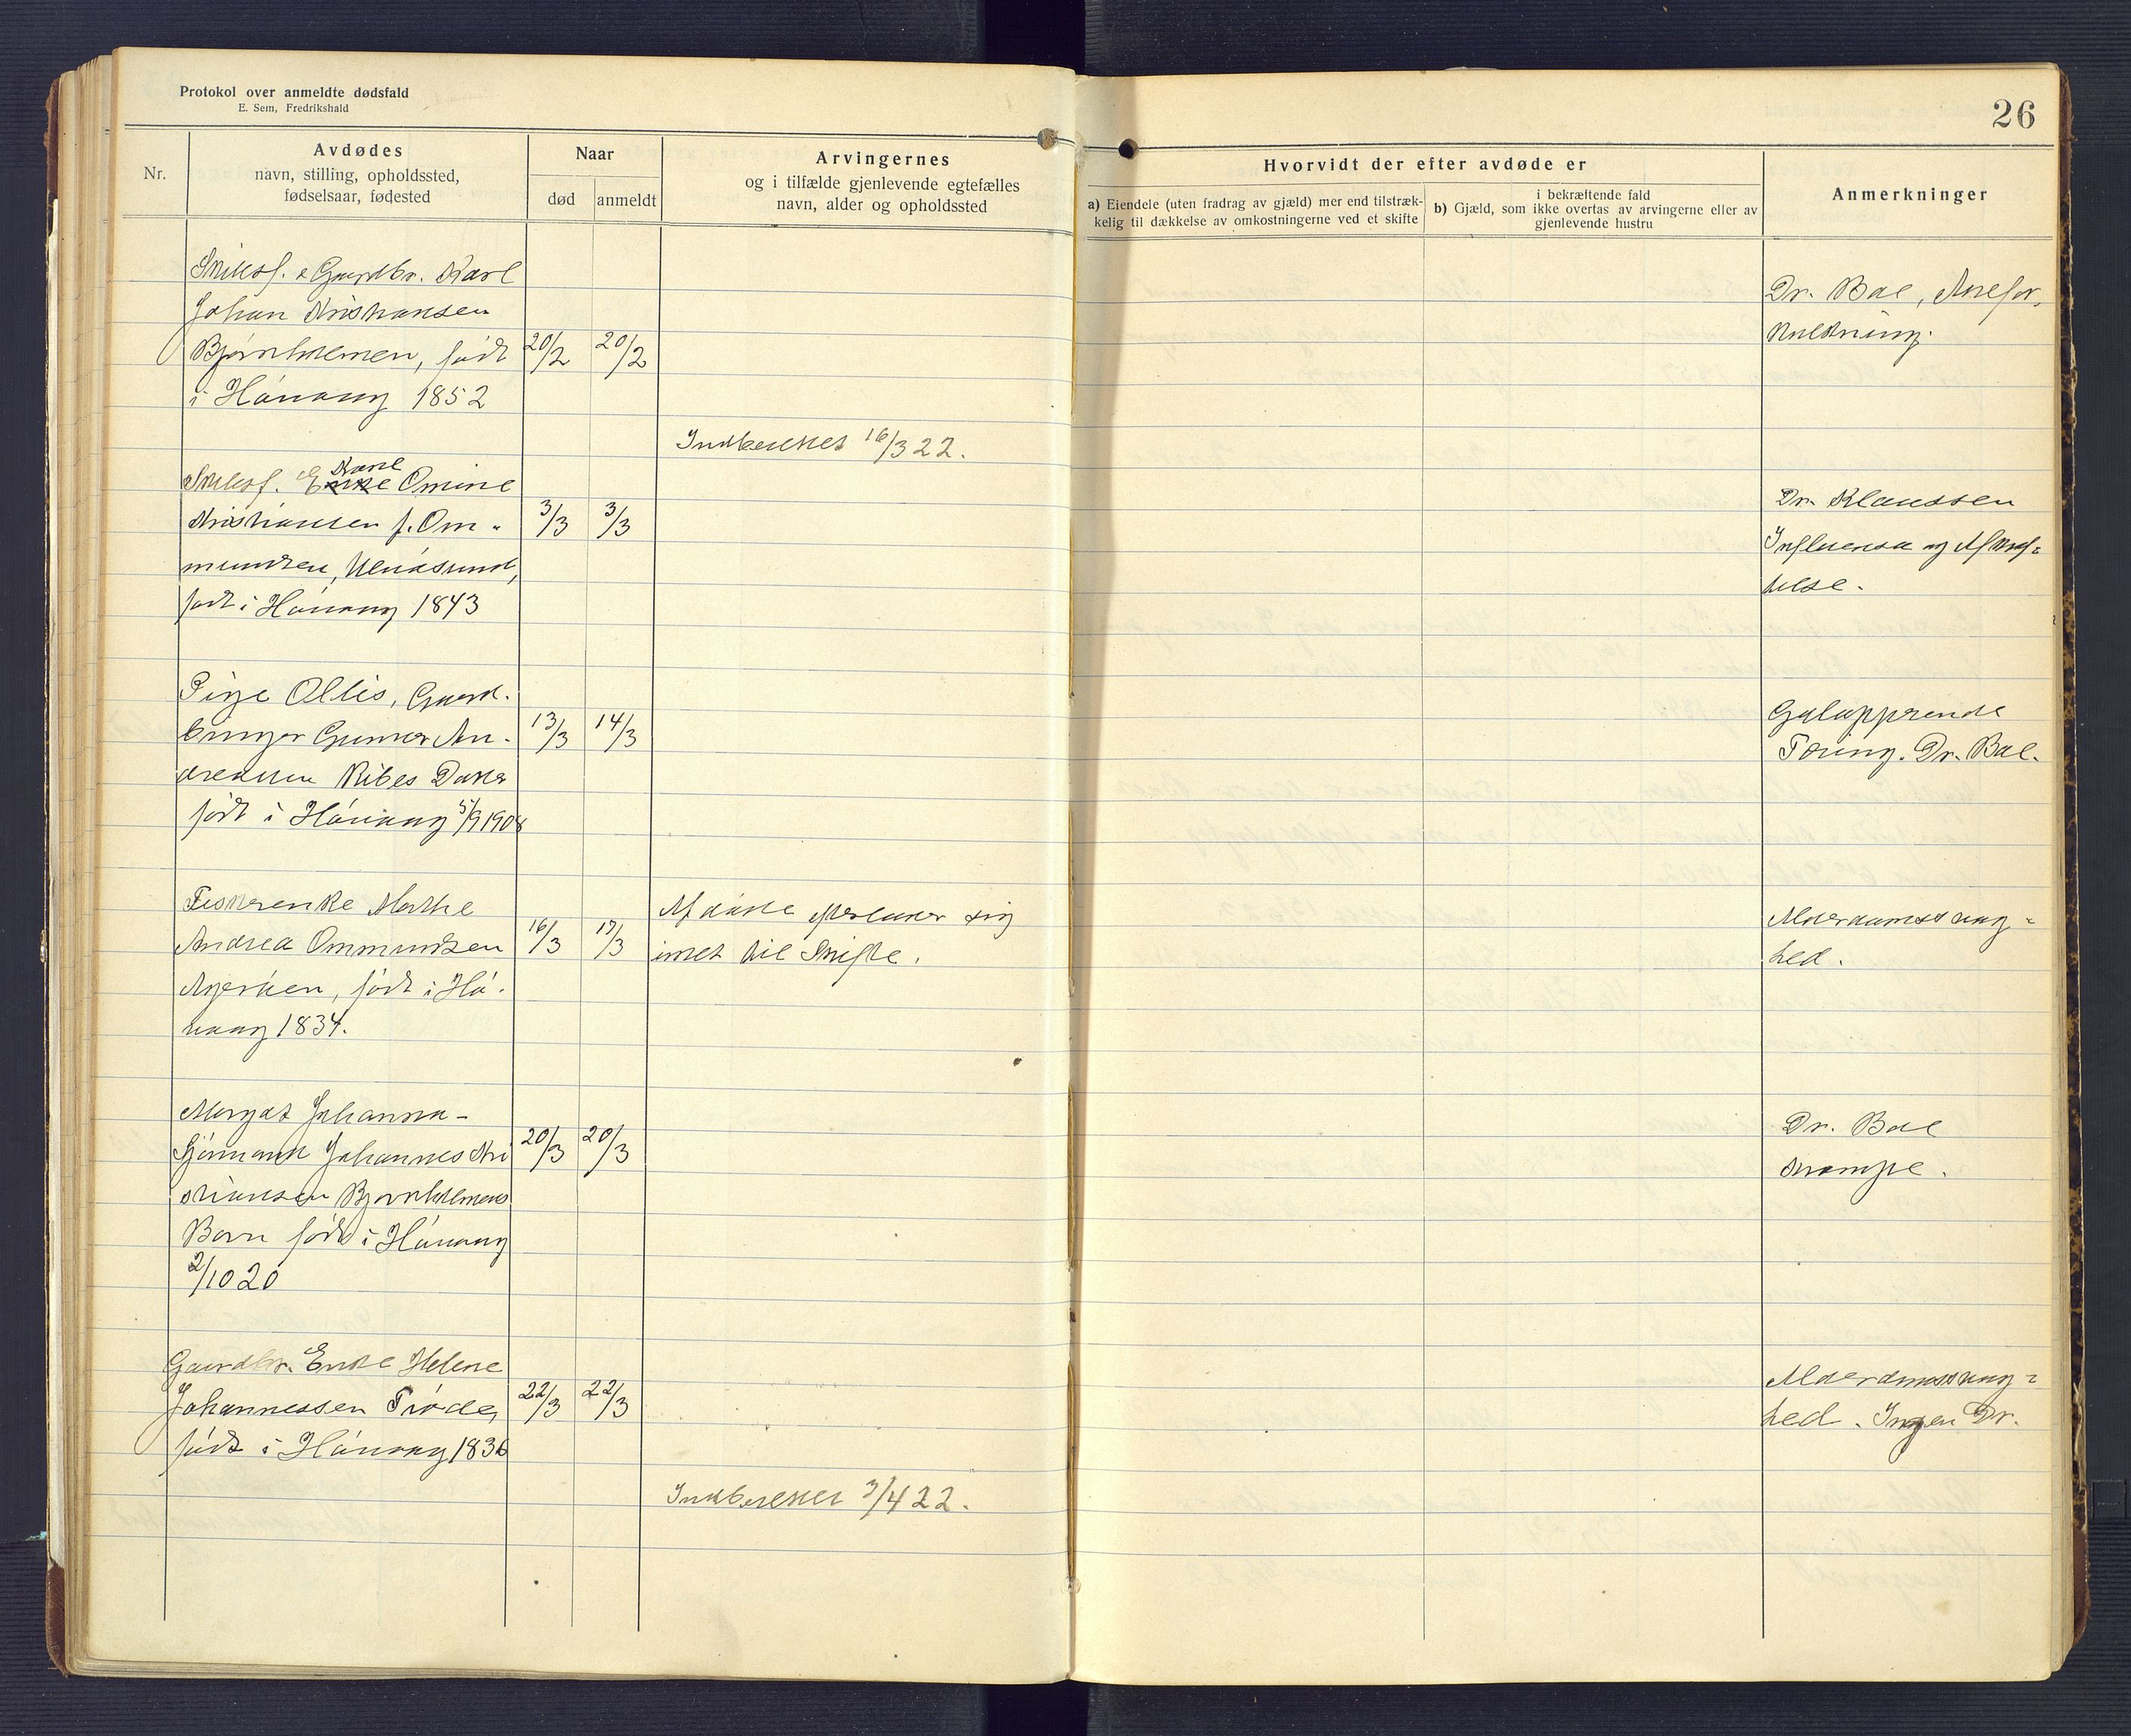 Protokol over anmeldte dødsfald
E. Sem, Fredrikshald
26
Nr.
Avdødes
navn, stilling, opholdssted,
fødselsaar, fødested
Naar
død
anmeldt
Arvingernes
og i tilfælde gjenlevende egtefælles
navn, alder og opholdssted
Hvorvidt der efter avdøde er
a) Eiendele (uten fradrag av gjæld) mer end tilstræk-
kelig til dækkelse av omkostningerne ved et skifte
i bekræftende fald
b) Gjæld, som ikke overtas av arvingerne eller av
gjenlevende hustru
Anmerkninger
& Gaardbr. Karl
Johan Kristiansen
Bjørnholmen, født
i Høivaag 1852
20/2 20/2
Dr. Boe,
Indberettet 16/3 22.
Karl
Enke Omine
Kristiansen f. Om-
mundsen, Ulvøsund,
født i Høivaag 1843
3/3 3/3
Dr. Klaussen
Influensa og Afkræf-
telse.
Pige Ollis, Gaard-
bruger Gunner An-
dreassen Ribes Datter
født i Høivaag 5/9 1908
13/3 14/3
Galopperende
Tæring. Dr. Boe.
Fiskerenke Marthe
Andrea Ommundsen
født i Høi-
vaag 1834.
16/3 17/3
Afdøde efterlader sig
intet til Skifte.
Alderdomssvag-
hed.
Margat Johanna-
Sjømand Johannes Kri
stiansen Bjørnholmens
Barn født i Høivaag
2/10 20
20/3 20/3
Dr. Boe
Krampe.
Gaardbr. Enke Helene
Johannessen Trøde,
født i Høivaag 1836
22/3 22/3
Alderdomssvag-
hed. Ingen Dr.
Indberettet 3/4 22.